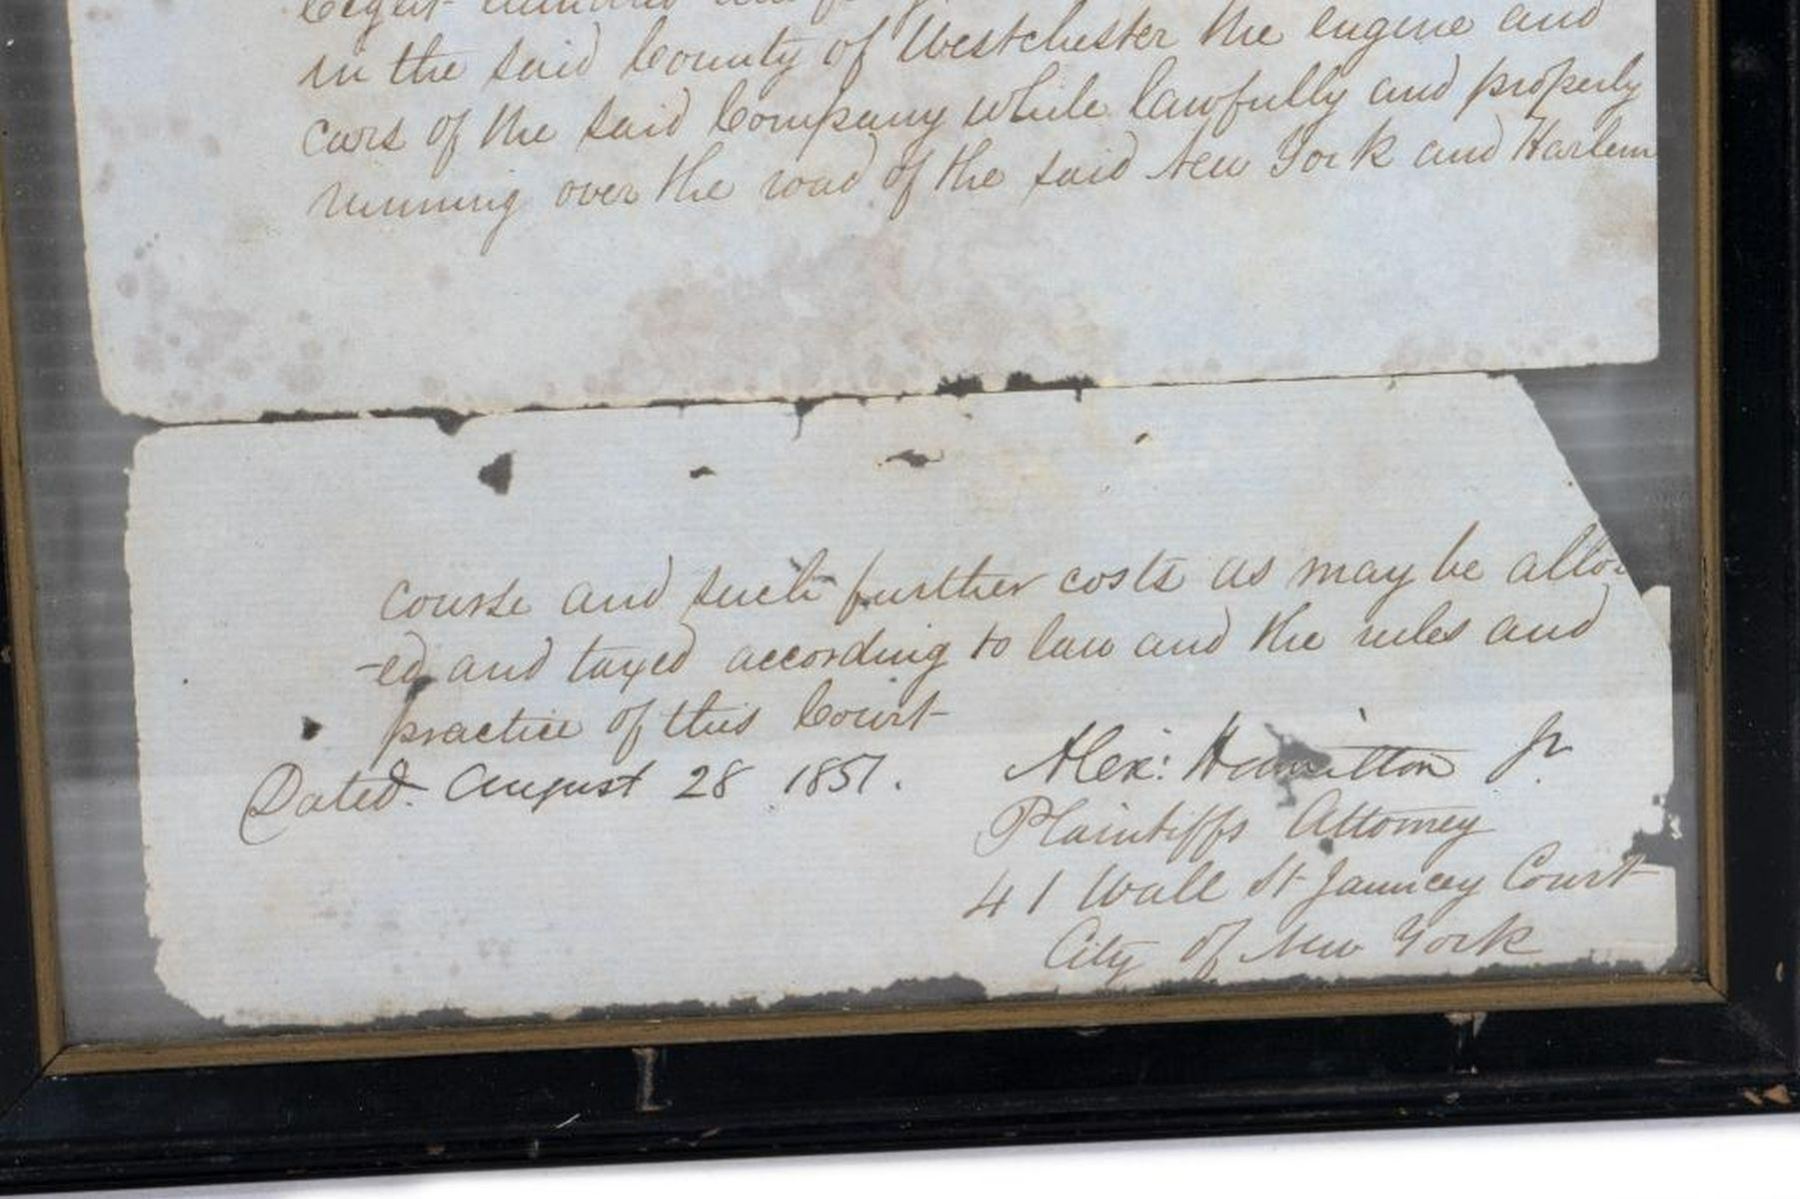 Eight hundred and
in the said County of Westchester the engine and
cars of the said Company while lawfully and properly
running over the road of the said New York and Harlem
course and such further costs as may be allow
-ed and taxed according to law and the rules and
practice of this Court
Dated August 28 1851.
Alex: Hamilton Jr
Plaintiffs Attorney
41 Wall St Jauncey Court
City of New York